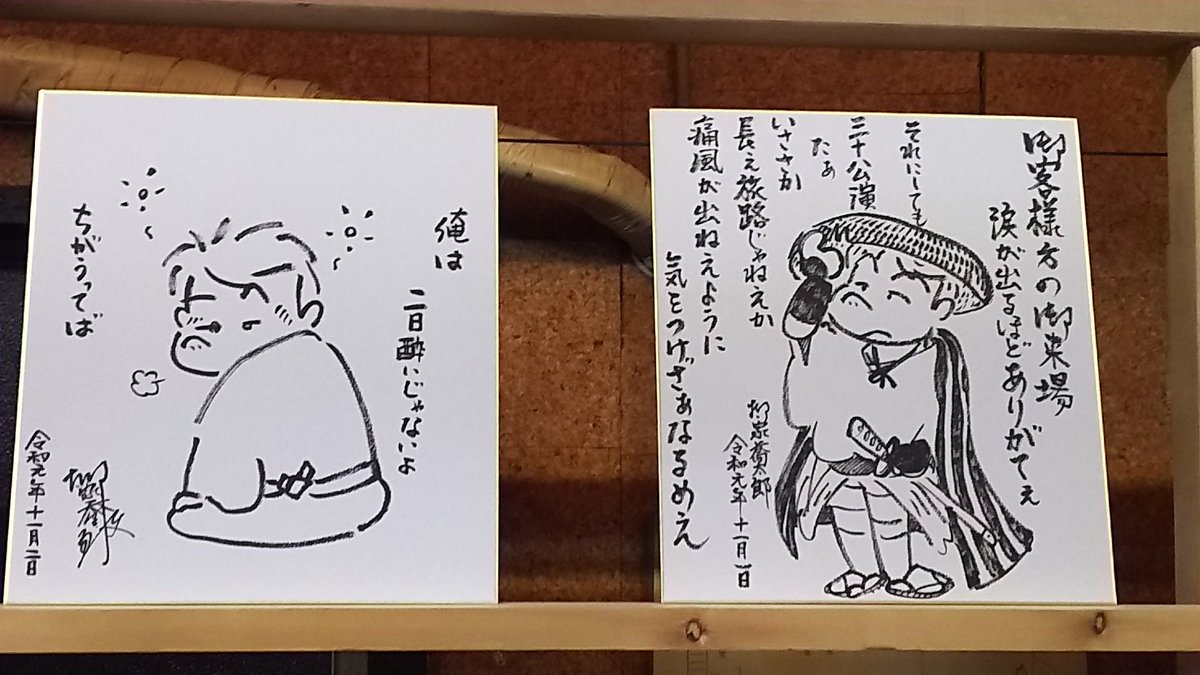 俺は
二日酔いじゃないよ
ちがうってば
令和元年十一月二日
御客様方の御来場
涙が出るほどありがてぇ
それにしても
三十公演
たぁ
いささか
長え旅路じゃねえか
痛風が出ねえように
気をつけざぁなるめえ
柳家喬太郎
令和元年十一月